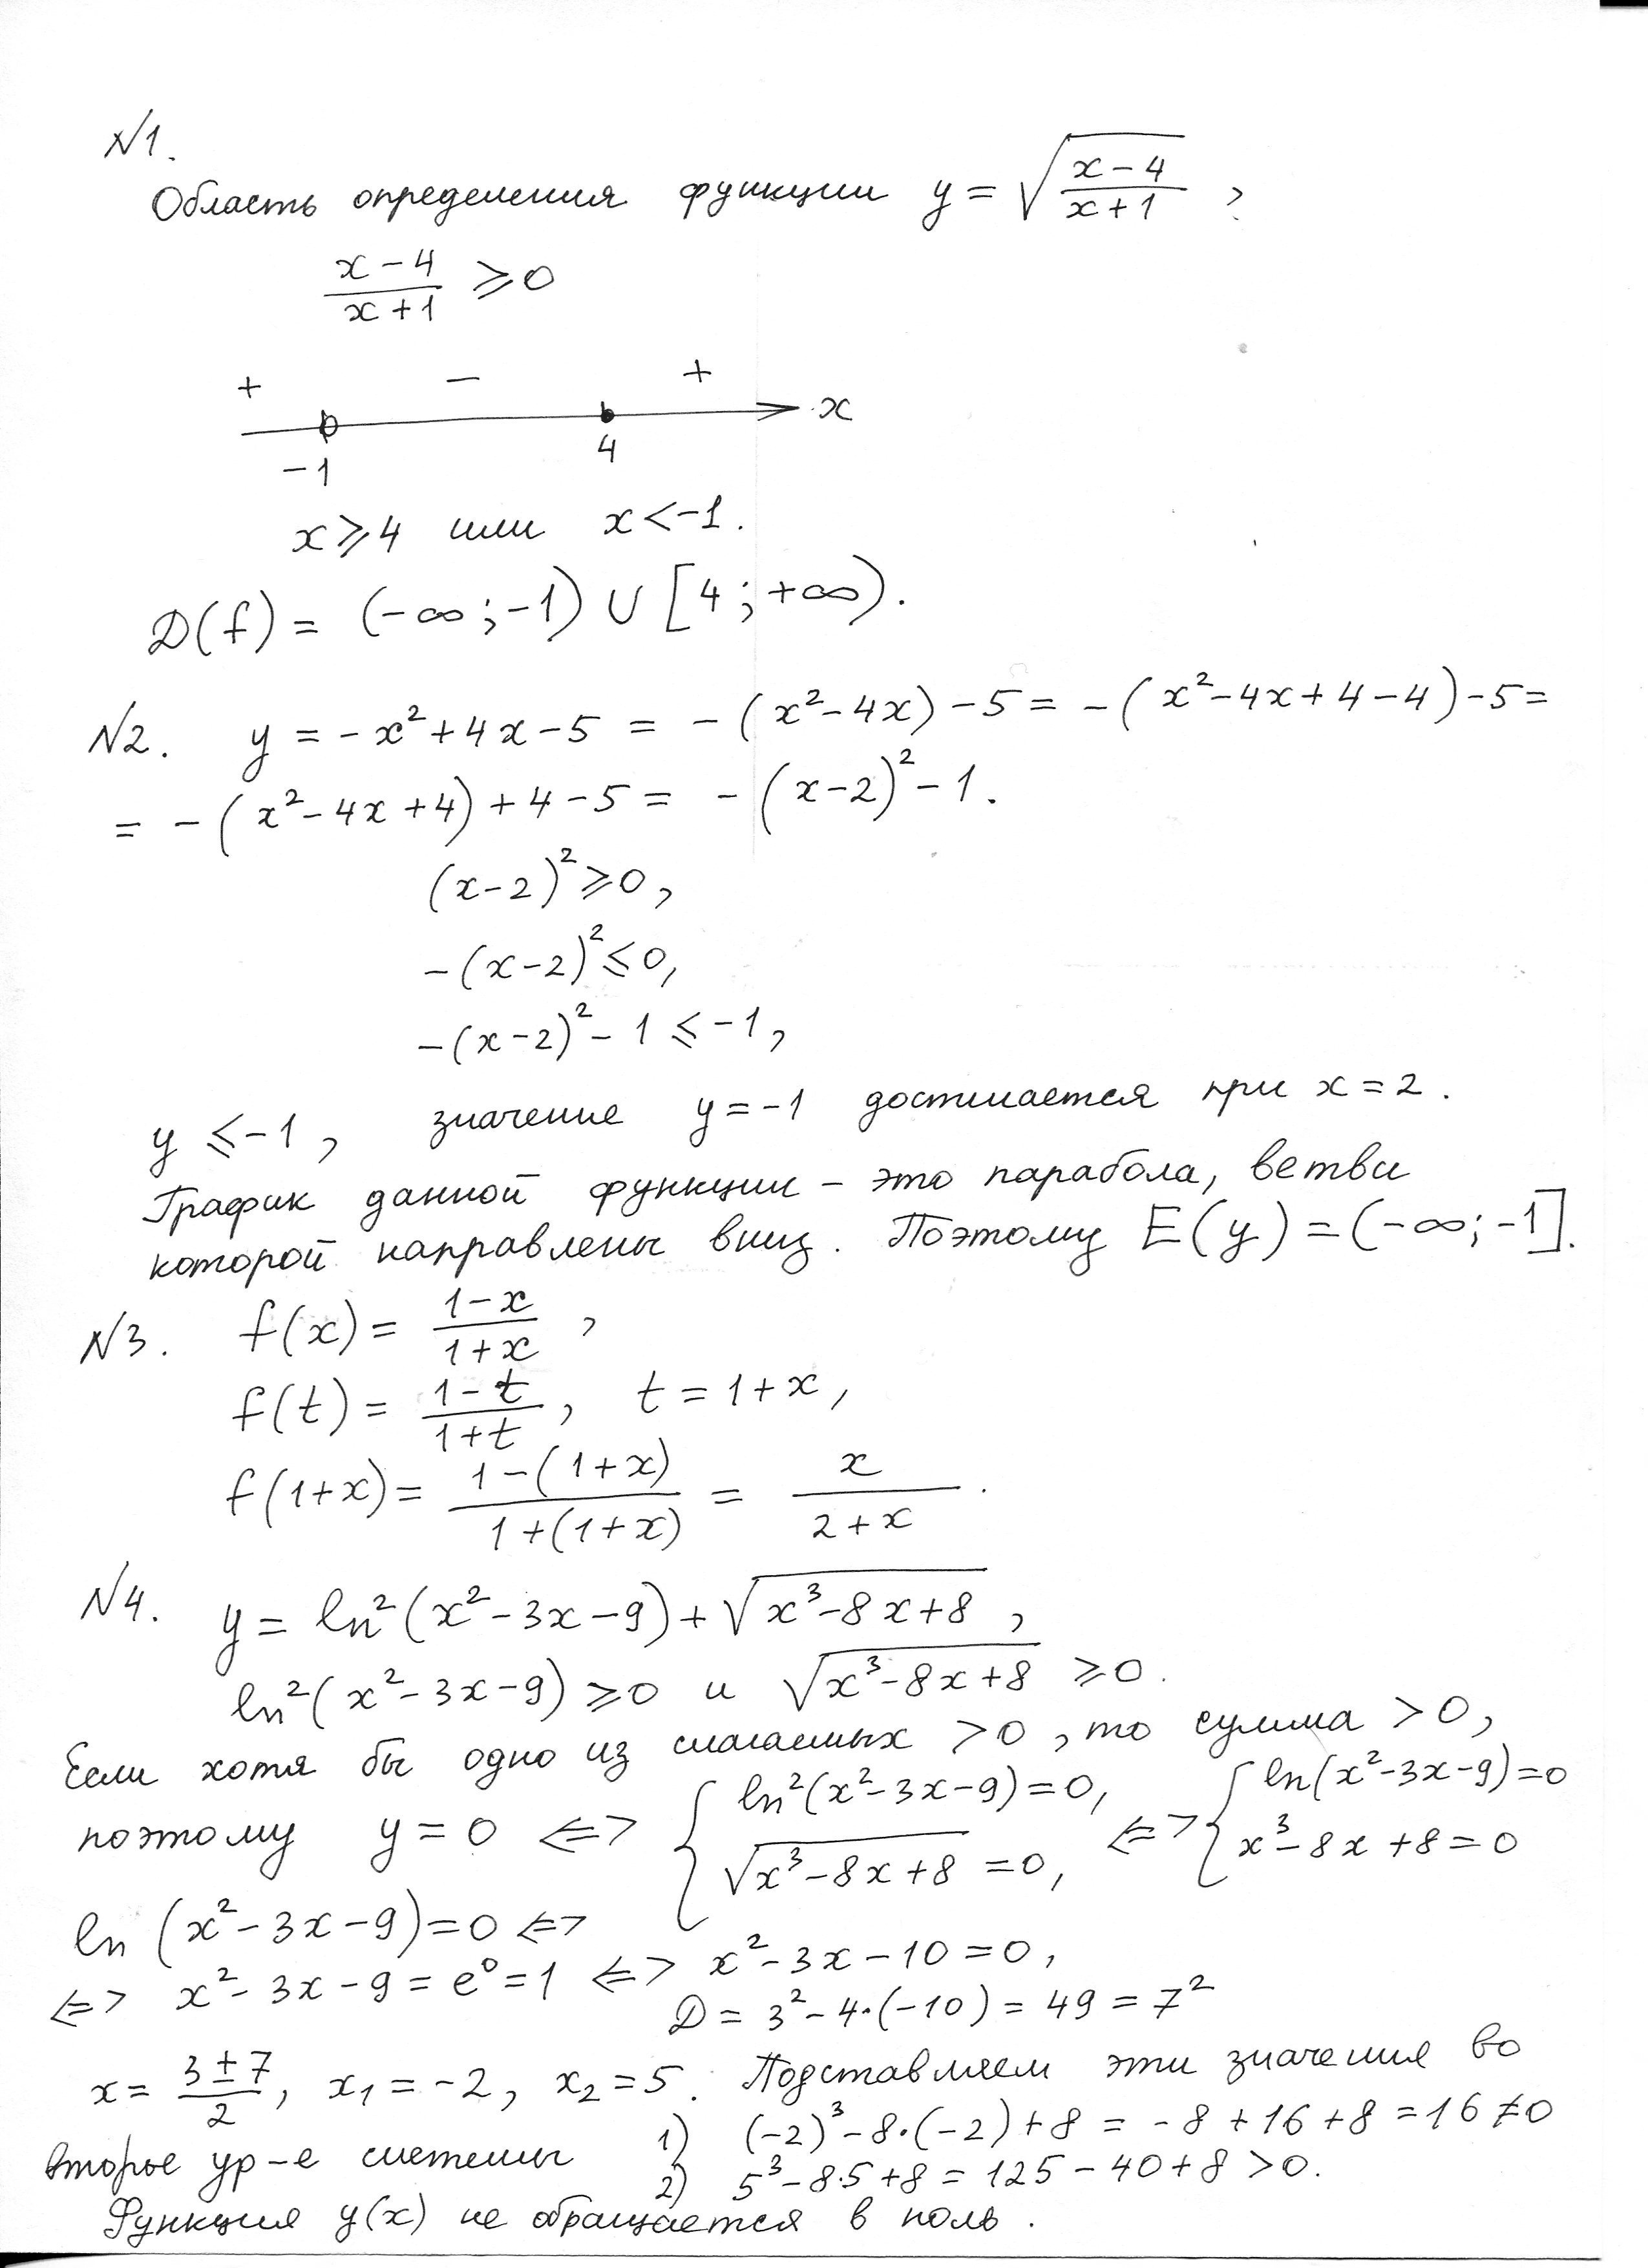 №1.
Область определения функции y = √((x-4)/(x+1)) ?
(x-4)/(x+1) ⩾ 0
+ − +
x
-1 4
x ⩾ 4 или x < -1.
D(f) = (-∞; -1) ∪ [4; +∞).
№2. y = -x² + 4x - 5 = -(x² - 4x) - 5 = -(x² - 4x + 4 - 4) - 5 =
= -(x² - 4x + 4) + 4 - 5 = -(x-2)² - 1.
(x-2)² ⩾ 0,
-(x-2)² ⩽ 0,
-(x-2)² - 1 ⩽ -1,
y ⩽ -1, значение y = -1 достигается при x = 2.
График данной функции – это парабола, ветви
которой направлены вниз. Поэтому E(y) = (-∞; -1].
№3. f(x) = (1-x)/(1+x),
f(t) = (1-t)/(1+t), t = 1+x,
f(1+x) = (1-(1+x))/(1+(1+x)) = x/(2+x).
№4. y = ln²(x² - 3x - 9) + √(x³ - 8x + 8),
ln²(x² - 3x - 9) ⩾ 0 и √(x³ - 8x + 8) ⩾ 0.
Если хотя бы одно из слагаемых > 0, то сумма > 0,
поэтому y = 0 <=> { ln²(x² - 3x - 9) = 0, √(x³ - 8x + 8) = 0, <=> { ln(x² - 3x - 9) = 0 x³ - 8x + 8 = 0
ln(x² - 3x - 9) = 0 <=>
<=> x² - 3x - 9 = e⁰ = 1 <=> x² - 3x - 10 = 0,
D = 3² - 4·(-10) = 49 = 7²
x = (3±7)/2, x₁ = -2, x₂ = 5. Подставляем эти значения во
второе ур-е системы 1) (-2)³ - 8·(-2) + 8 = -8 + 16 + 8 = 16 ≠ 0
2) 5³ - 8·5 + 8 = 125 - 40 + 8 > 0.
Функция y(x) не обращается в ноль.